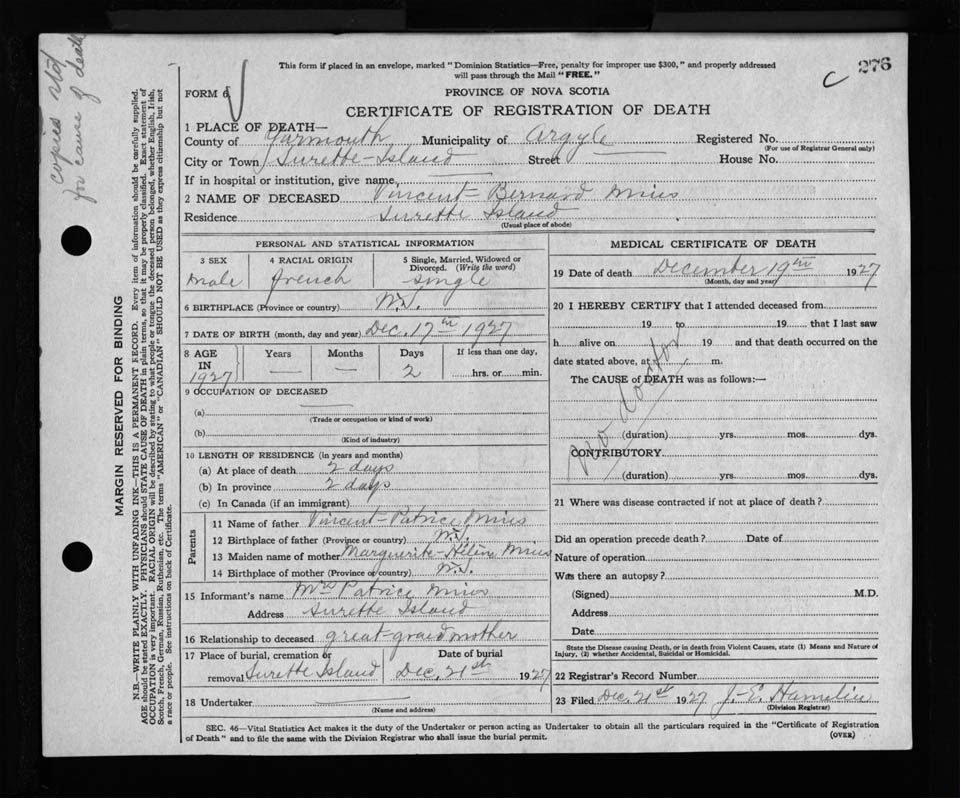 copies not
for cause of death
C 276
This form if placed in an envelope, marked "Dominion Statistics—Free, penalty for improper use $300," and properly addressed
will pass through the Mail "FREE."
FORM 6
PROVINCE OF NOVA SCOTIA
CERTIFICATE OF REGISTRATION OF DEATH
1 PLACE OF DEATH—
County of Yarmouth Municipality of Argyle Registered No.
(For use of Registrar General only)
City or Town Surette-Island Street House No.
If in hospital or institution, give name
2 NAME OF DECEASED Vincent-Bernard Mius
Residence Surette Island
(Usual place of abode)
PERSONAL AND STATISTICAL INFORMATION
3 SEX 4 RACIAL ORIGIN 5 Single, Married, Widowed or Divorced. (Write the word)
male french single
6 BIRTHPLACE (Province or country) N.S.
7 DATE OF BIRTH (month, day and year) Dec. 17th 1927
8 AGE IN 1927 Years — Months — Days 2 If less than one day, hrs. or min.
9 OCCUPATION OF DECEASED
(a)
(Trade or occupation or kind of work)
(b)
(Kind of industry)
10 LENGTH OF RESIDENCE (in years and months)
(a) At place of death 2 days
(b) In province 2 days
(c) In Canada (if an immigrant)
Parents
11 Name of father Vincent-Patrice Mius
12 Birthplace of father (Province or country) N.S.
13 Maiden name of mother Marguerite-Hélène Mius
14 Birthplace of mother (Province or country) N.S.
15 Informant's name Mrs Patrice Mius
Address Surette Island
16 Relationship to deceased great-grandmother
17 Place of burial, cremation or removal Surette Island Date of burial Dec. 21st 1927
18 Undertaker
(Name and address)
MEDICAL CERTIFICATE OF DEATH
19 Date of death December 19th 1927
(Month, day and year)
20 I HEREBY CERTIFY that I attended deceased from
19 to 19 that I last saw
h alive on 19 and that death occurred on the
date stated above, at m.
The CAUSE of DEATH was as follows:—
no doctor
(duration) yrs. mos. dys.
CONTRIBUTORY
(duration) yrs. mos. dys.
21 Where was disease contracted if not at place of death?
Did an operation precede death? Date of
Nature of operation
Was there an autopsy?
(Signed) M.D.
Address
Date
State the Disease causing Death, or in death from Violent Causes, state (1) Means and Nature of
Injury, (2) whether Accidental, Suicidal or Homicidal.
22 Registrar's Record Number
23 Filed Dec. 21st 1927 J.-E. Hamelin
(Division Registrar)
SEC. 46—Vital Statistics Act makes it the duty of the Undertaker or person acting as Undertaker to obtain all the particulars required in the "Certificate of Registration
of Death" and to file the same with the Division Registrar who shall issue the burial permit.
(OVER)
MARGIN RESERVED FOR BINDING
N.B.—WRITE PLAINLY WITH UNFADING INK—THIS IS A PERMANENT RECORD. Every item of information should be carefully supplied.
AGE should be stated EXACTLY. PHYSICIANS should STATE CAUSE OF DEATH in plain terms, so that it may be properly classified. Exact statement of
OCCUPATION is very important. RACIAL ORIGIN will be described by stating to what people or tongue the deceased person belonged, whether English, Irish,
Scotch, French, German, Russian, Ruthenian, etc. The terms "AMERICAN" or "CANADIAN" SHOULD NOT BE USED as they express citizenship but not
a race or people. See instructions on back of Certificate.